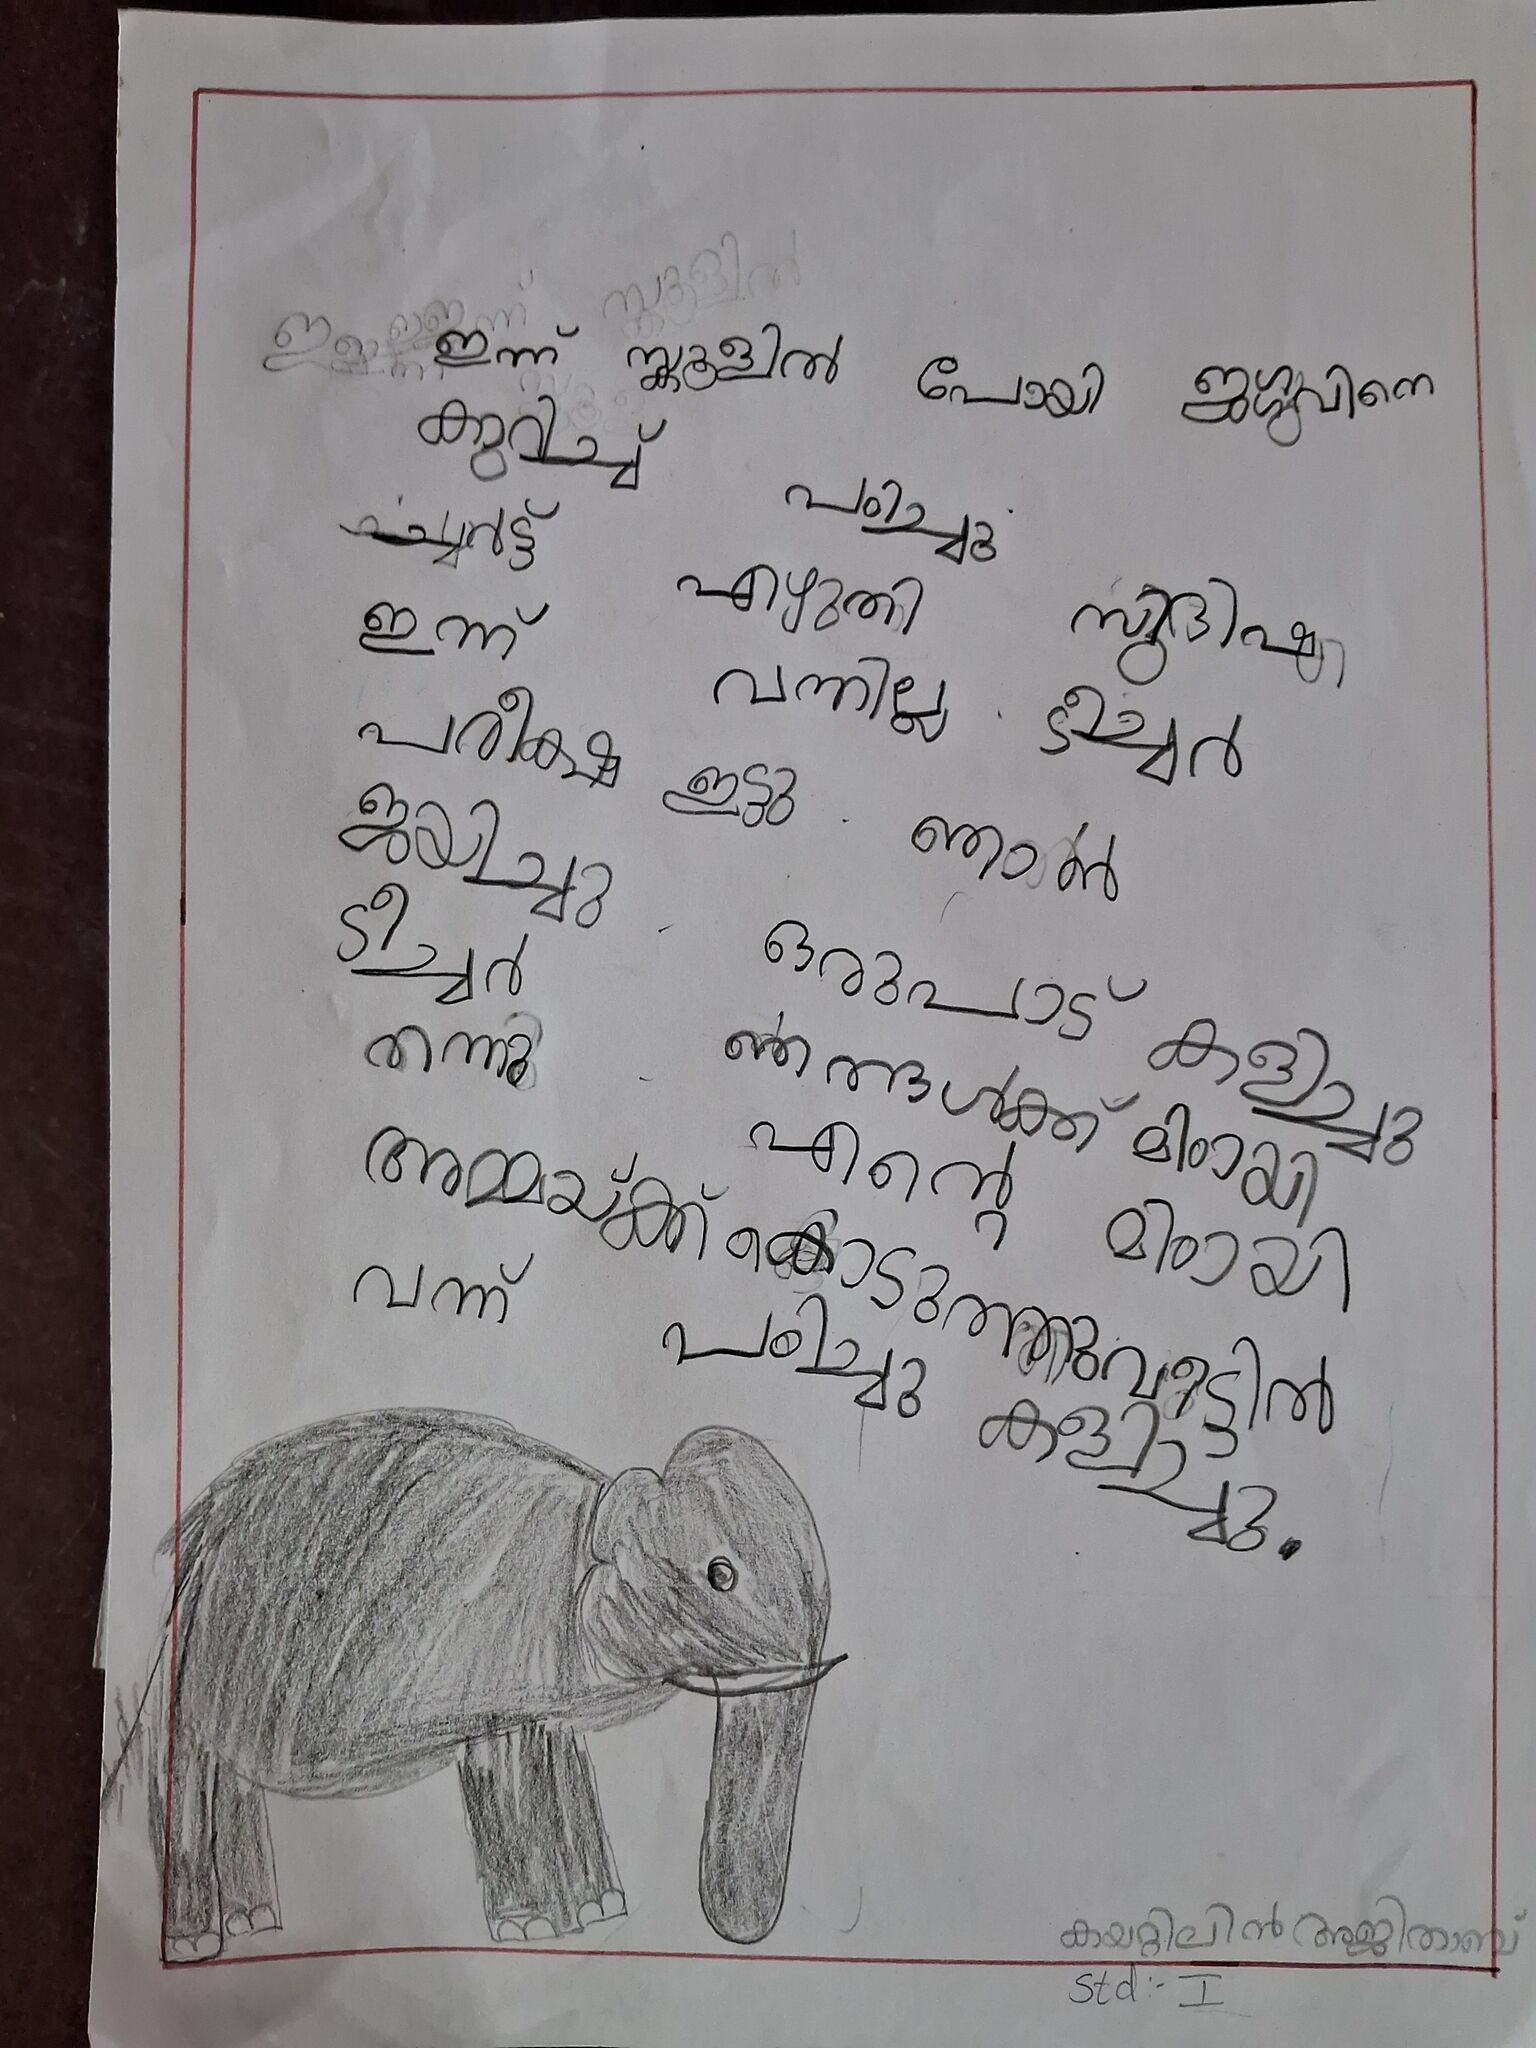 ഇന്ന് സ്കൂളിൽ പോയി ജഗ്ഗുവിനെ
കുറിച്ച് പഠിച്ചു
ച്ചർട്ട് എഴുതി
ഇന്ന് വന്നില്ല. ടീച്ചർ
പരീക്ഷ ഇട്ടു. ഞാൻ
ജയിച്ചു. ഒരുപാട് കളിച്ചു
ടീച്ചർ ഞങ്ങൾക്ക് മിഠായി
തന്നു. എന്റെ മിഠായി
അമ്മയ്ക്ക് കൊടുത്തു വീട്ടിൽ
വന്ന് പഠിച്ചു കളിച്ചു.
std:- I